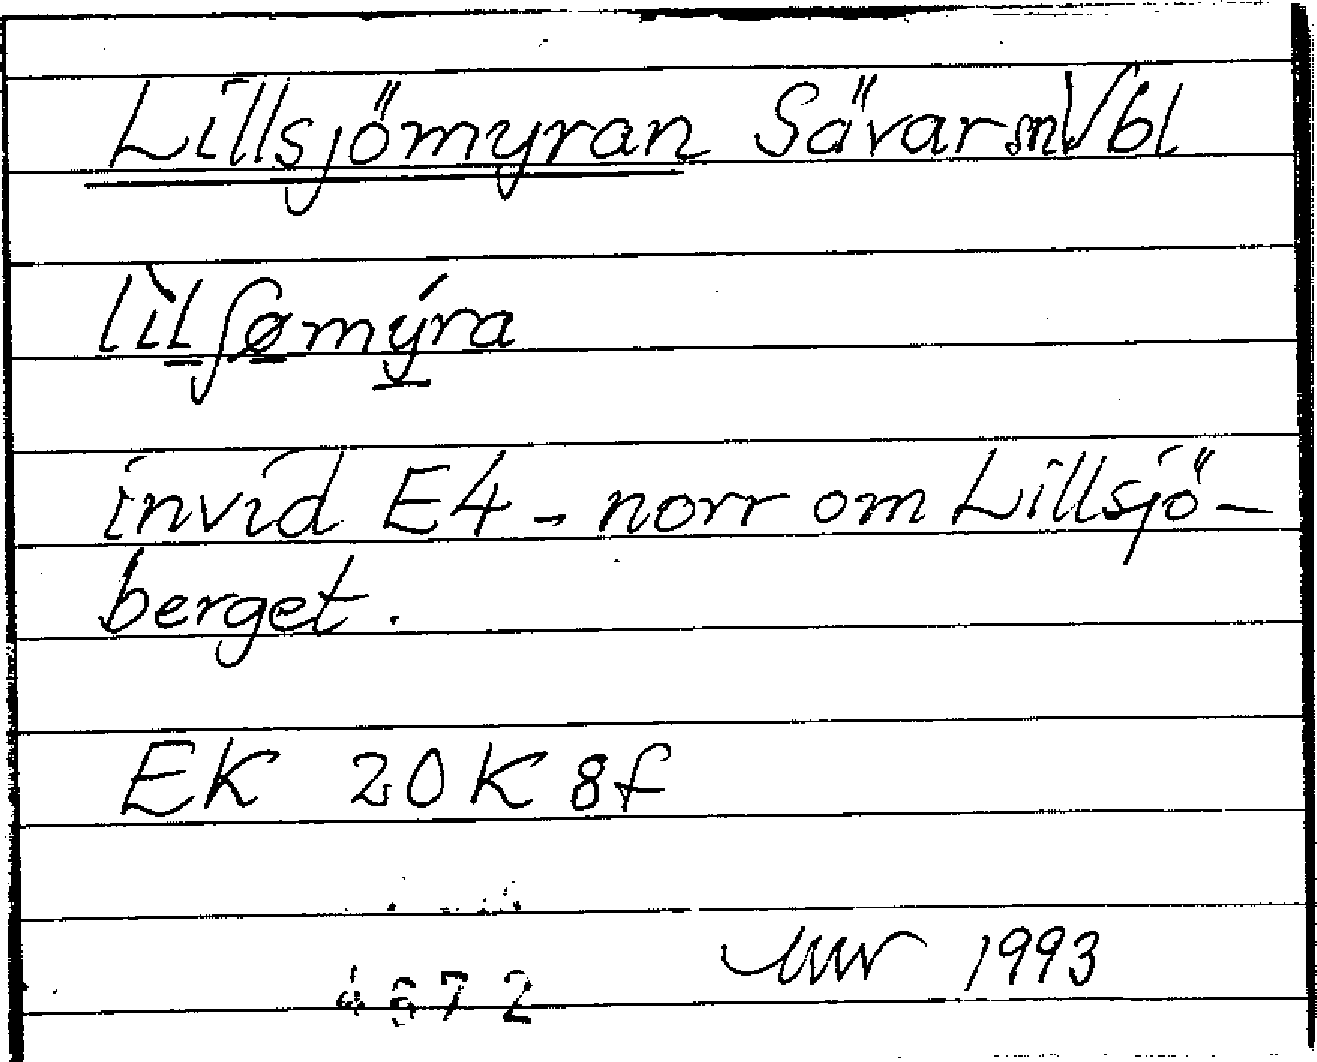 Lillsjömyran Sävar sn Vbl
lìlʃømýra
invid E4 - norr om Lillsjö-
berget.
EK 20K 8f
1993